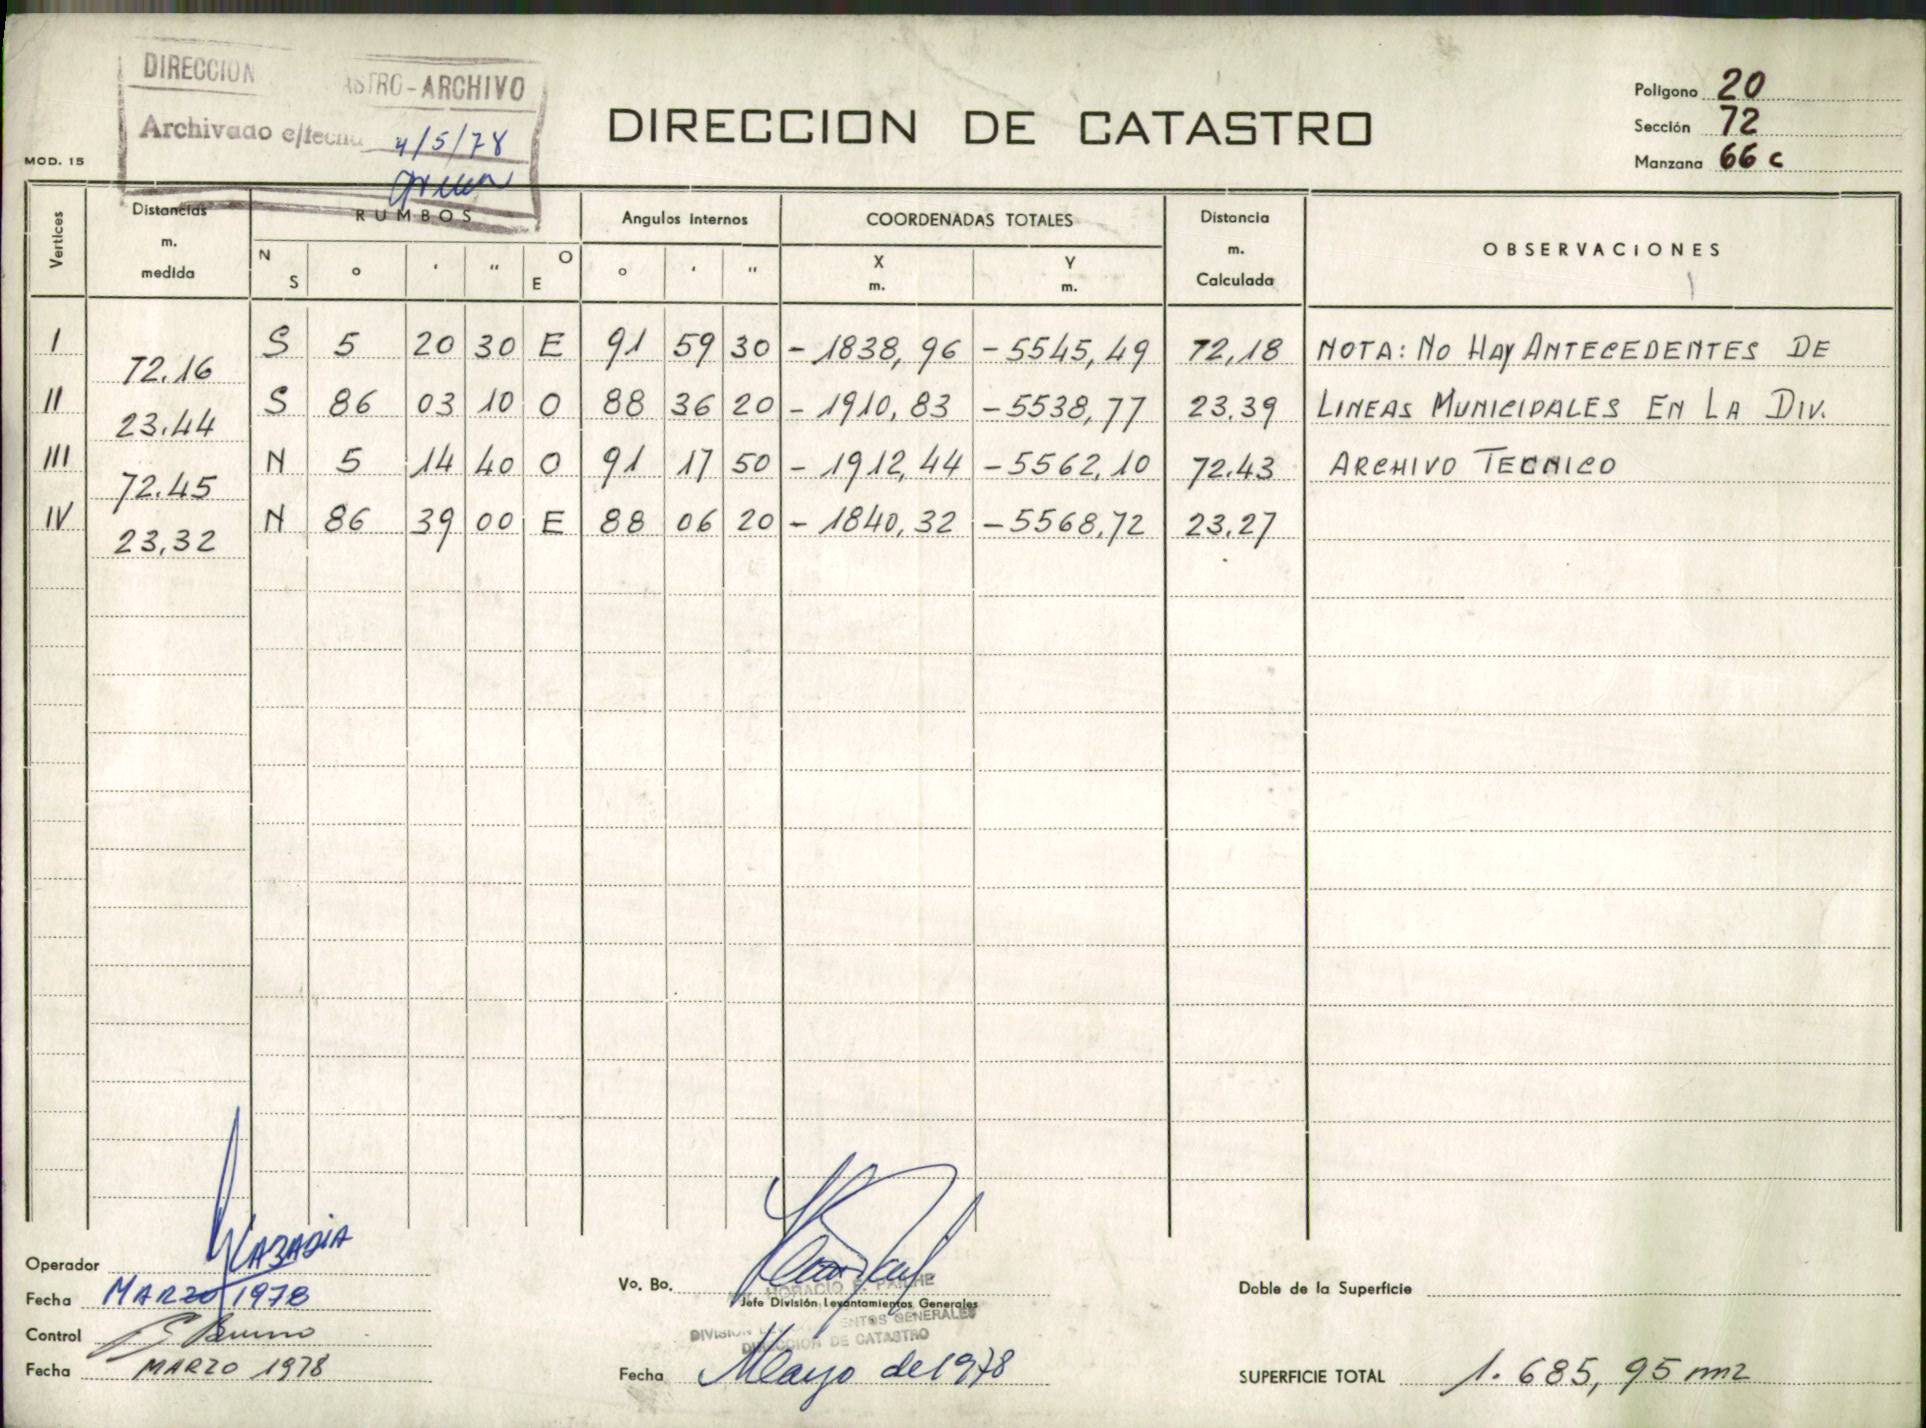 DIRECCION ASTRO-ARCHIVO
Archivado e/fecha 4/5/78
DIRECCION DE CATASTRO
MOD. 15
Poligono 20
Sección 72
Manzana 66 c
Vertices Distancias m. medida RUMBOS Angulos Internos COORDENADAS TOTALES Distancia m. Calculada OBSERVACIONES
N S ° ' " O E ° ' " X m. Y m.
I 72.16 S 5 20 30 E 91 59 30 -1838,96 -5545,49 72,18 NOTA: No Hay ANTECEDENTES DE
II 23.44 S 86 03 10 O 88 36 20 -1910,83 -5538,77 23.39 LINEAS MUNICIPALES EN LA DIV.
III 72.45 N 5 14 40 O 91 17 50 -1912,44 -5562,10 72.43 ARCHIVO TECNICO
IV 23,32 N 86 39 00 E 88 06 20 -1840,32 -5568,72 23,27
Operador
Fecha MARZO 1978
Control
Fecha MARZO 1978
Vo. Bo.
HORACIO
Jefe División Levantamientos Generales
DIVISION ENTOS GENERALES
DIRECCION DE CATASTRO
Fecha Mayo de 1978
Doble de la Superficie
SUPERFICIE TOTAL 1.685,95 m2